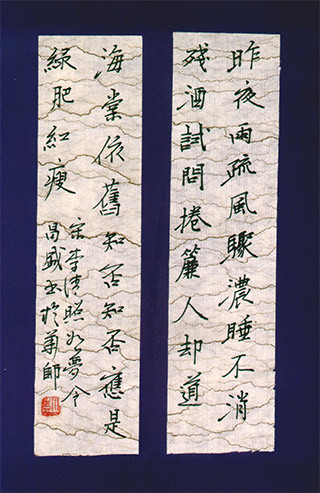 昨夜雨疏風驟濃睡不消
残酒試問捲簾人却道
海棠依舊知否知否應是
綠肥紅瘦
宋李清照如夢令
昌盛书於華師